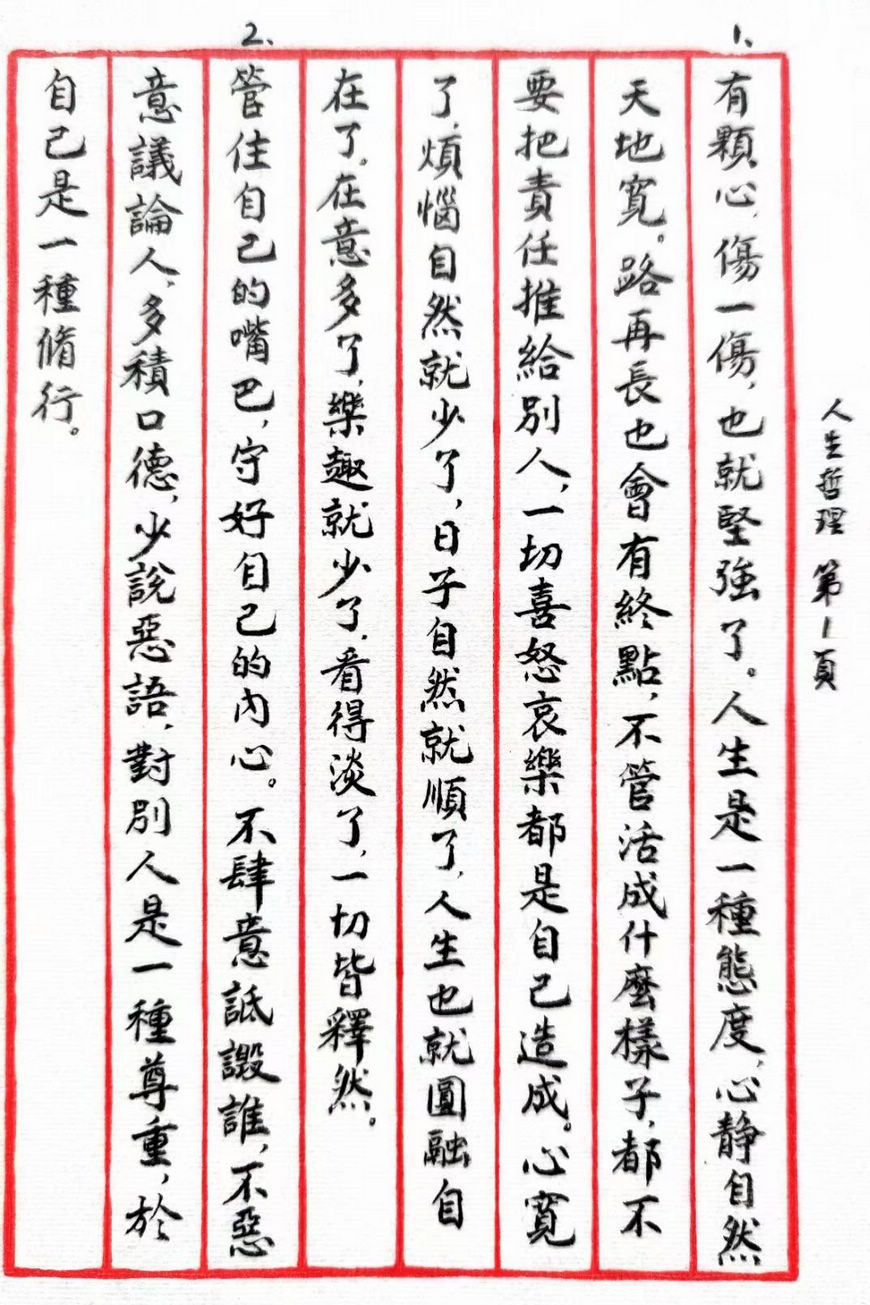 人生哲理 第1頁
1、
有顆心,傷一傷,也就堅強了。人生是一種態度,心静自然
天地寬。路再長也會有終點,不管活成什麽樣子,都不
要把責任推給別人,一切喜怒哀樂都是自己造成。心寬
了,煩惱自然就少了,日子自然就順了,人生也就圓融自
在了。在意多了,樂趣就少了,看得淡了,一切皆釋然。
2、
管住自己的嘴巴,守好自己的内心。不肆意詆譭誰,不惡
意議論人,多積口德,少説惡語,對別人是一種尊重,於
自己是一種脩行。